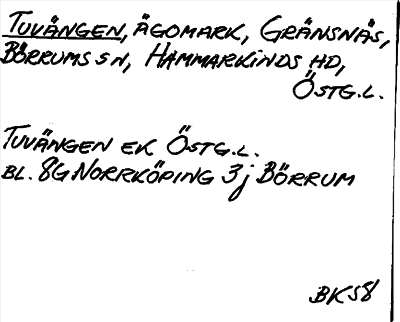 TUVÄNGEN, ÄGOMARK, GRÄNSNÄS,
BÖRRUMS SN, HAMMARKINDS HD,
ÖSTG.L.
TUVÄNGEN EK ÖSTG.L.
BL. 8G NORRKÖPING 3j BÖRRUM
BK58